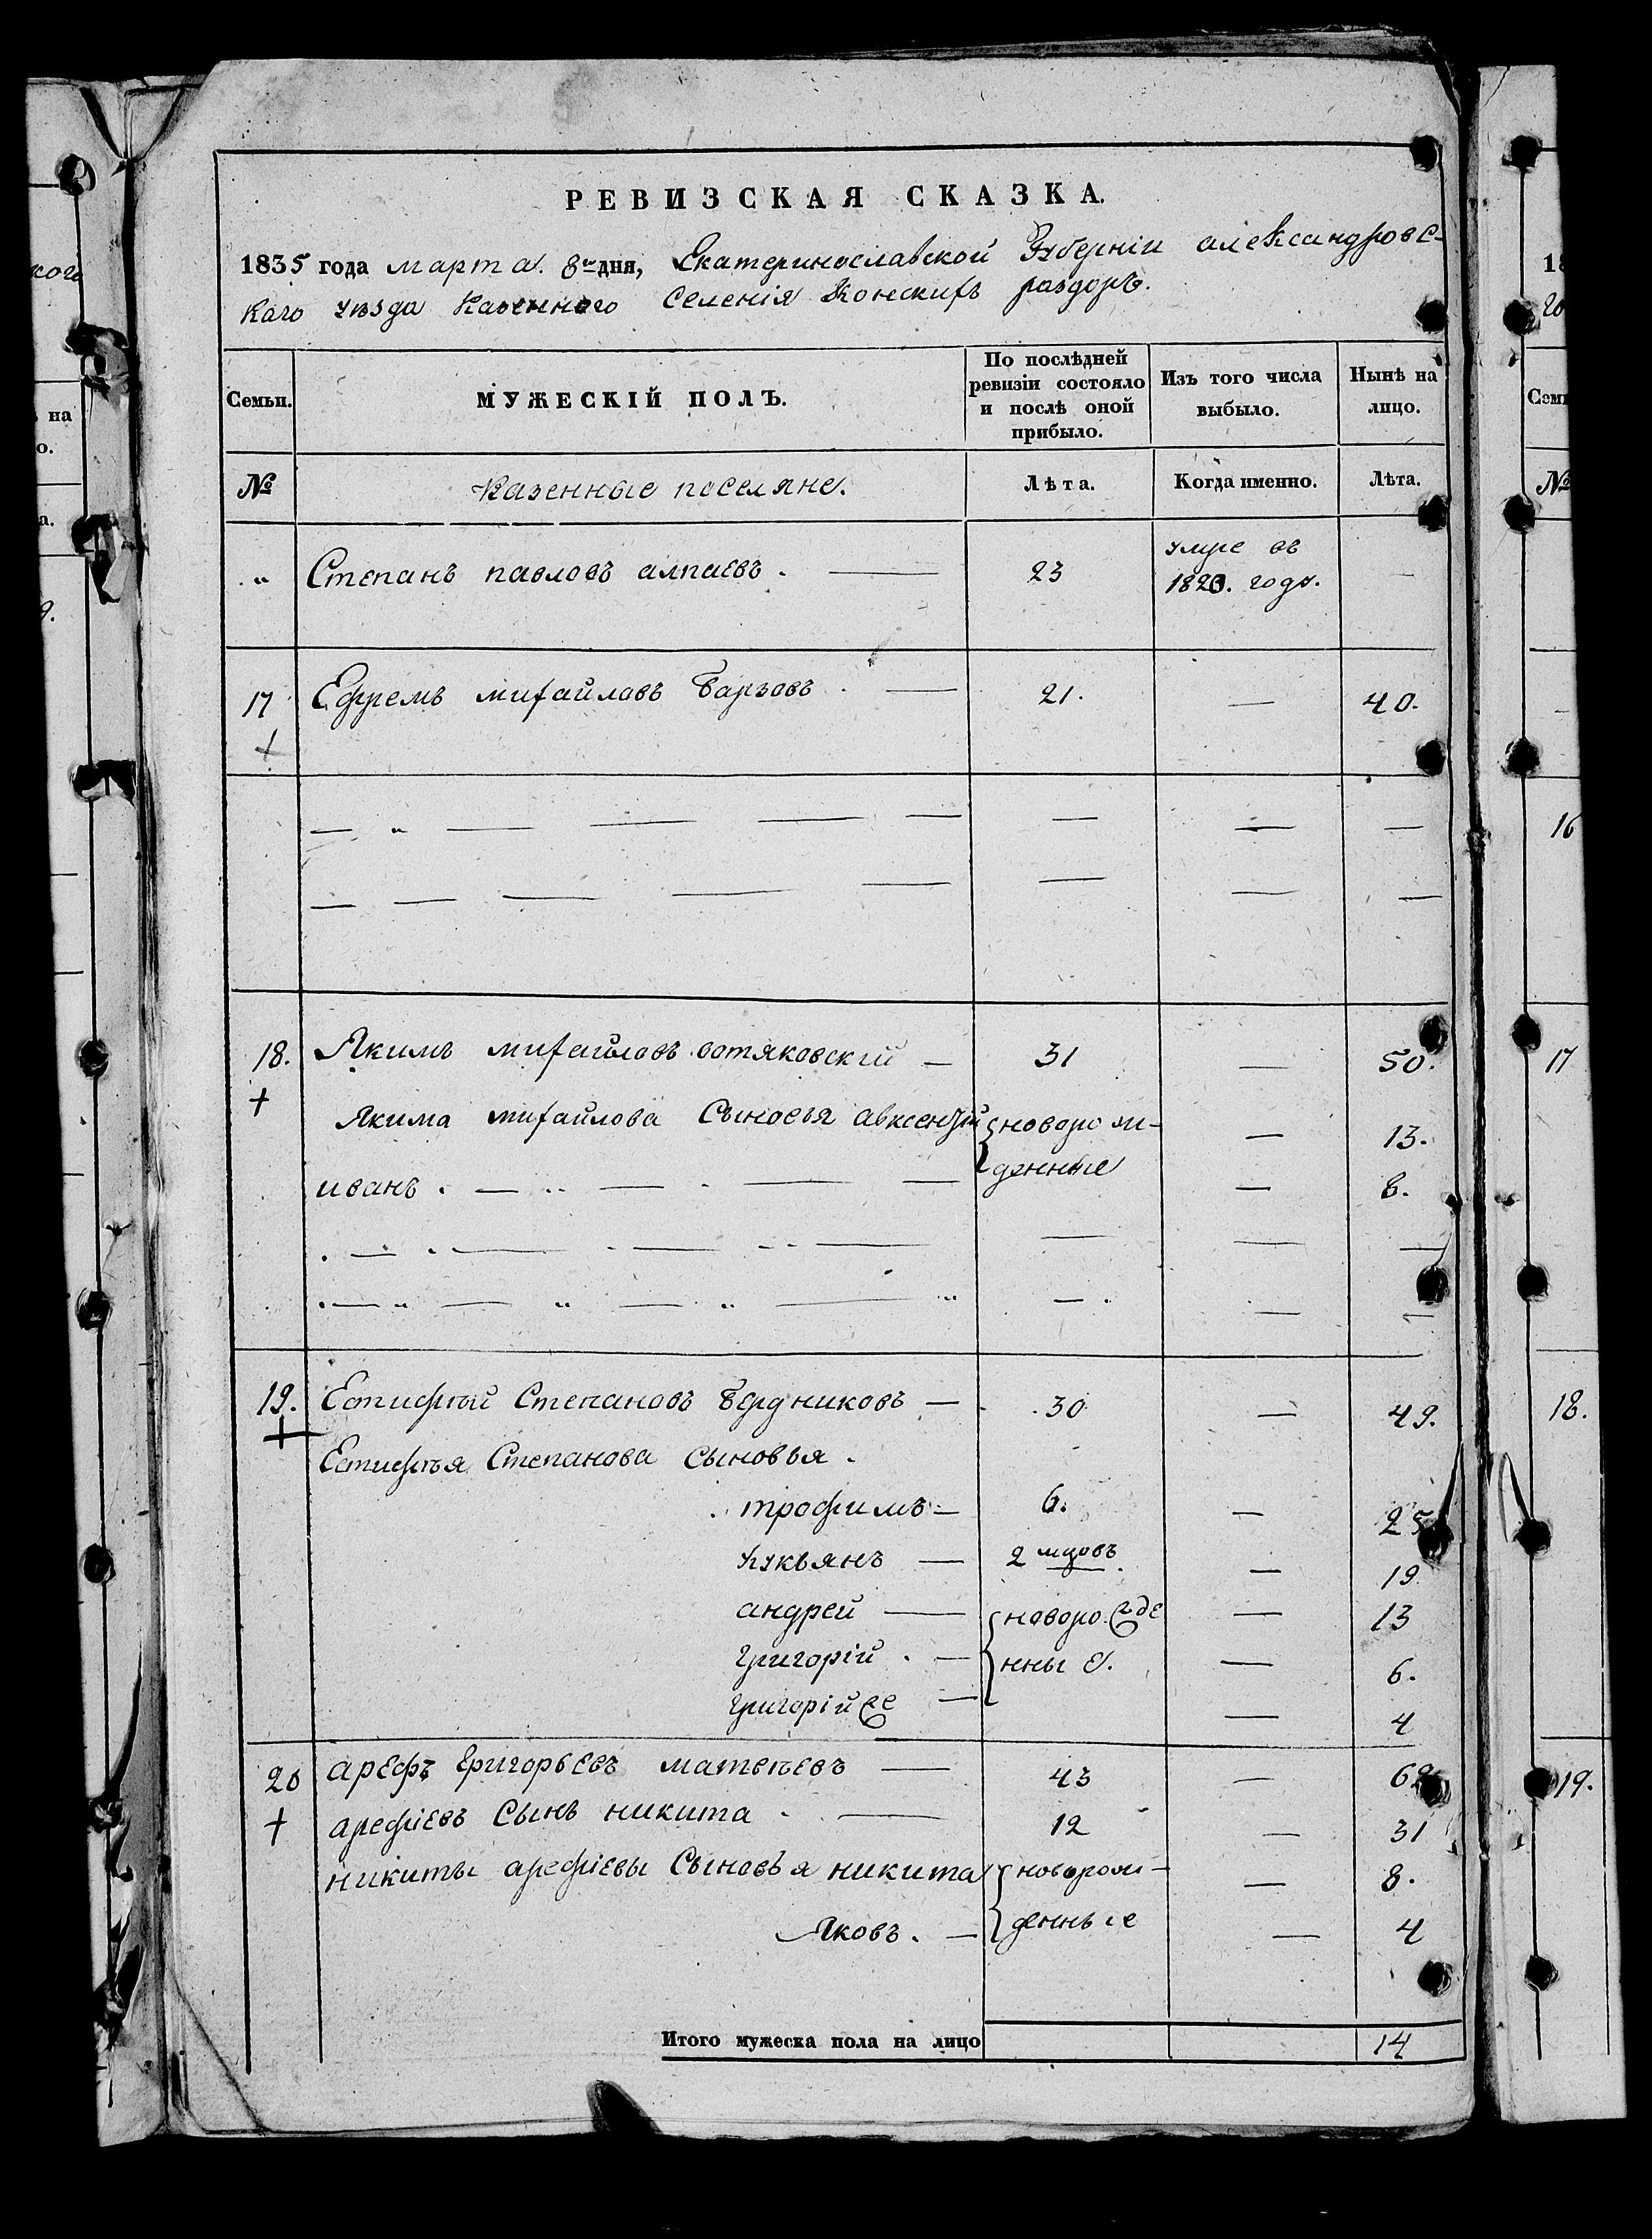 РЕВИЗСКАЯ СКАЗКА.
1835 года марта 8го дня, Екатеринославской Губерніи александровс-
каго уѣзда Казенного Селенія Конскихъ раздоръ.
Семьи.
МУЖЕСКІЙ ПОЛЪ.
По послѣдней ревизіи состояло и послѣ оной прибыло.
Изъ того числа выбыло.
Нынѣ на лицо.
№ Казенные поселяне. Лѣта. Когда именно. Лѣта.
„ Степанъ павловъ алпаевъ. — 23 умре въ 1820. году. —
17 Ефремъ михайловъ — 21. — 40.
18. Якимъ михайловъ вотяковский — 31 — 50.
Якима михайлова Сыновья авксентий {новорож- — 13.
иванъ. — денные — 8.
19. Естифѣй Степановъ Бердниковъ — 30 — 49.
Естифѣя Степанова сыновья.
трофимъ — 6. — 25
лукьянъ — 2 мцовъ. — 19
андрей — {новорожде — 13
Григорій. — нные. — 6.
Григорійже — — 4
20 арефъ Григорьевъ матвѣевъ — 43 — 62
арефіевъ Сынъ никита — 12 — 31
никиты арефіевы Сыновья никита {новорож- — 8.
Яковъ. — денные — 4
Итого мужеска пола на лицо 14
кого
на
о.
а.
18
Семь
№
16
17
18.
19.